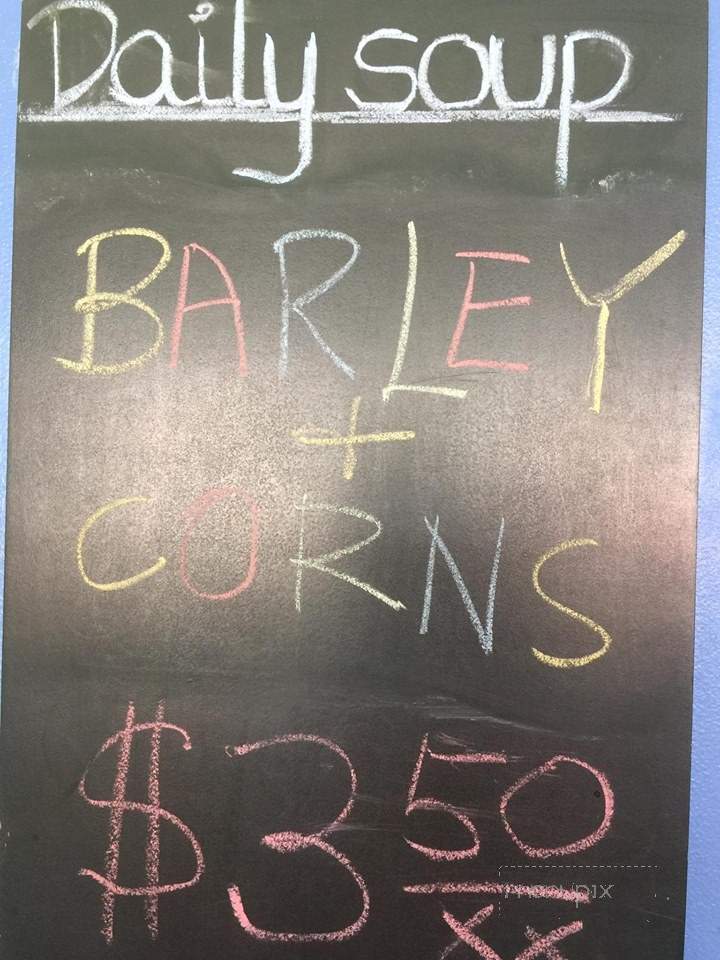 Daily soup
BARLEY
+
CORNS
$3 50
xx